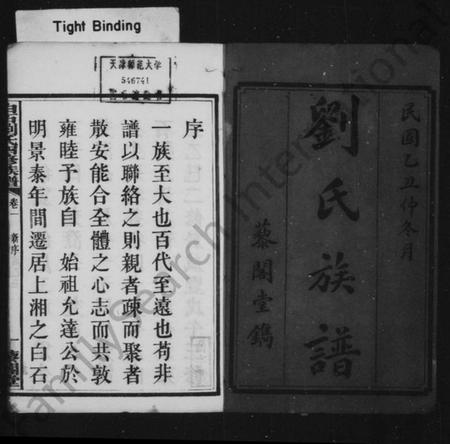 Tight Binding
民國乙丑仲冬月
劉氏族譜
藜閣堂鐫
天津師範大學
546741
序
一族至大也百代至遠也苟非
譜以聯絡之則親者疎而聚者
散安能合全體之心志而共敦
雍睦予族自 始祖允達公於
明景泰年間遷居上湘之白石
卷一 新序
一 藜閣堂
FamilySearch International